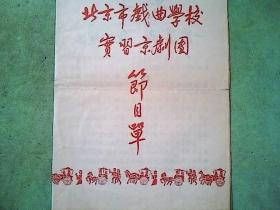 北京市戲曲學校
實習京劇團
節目單